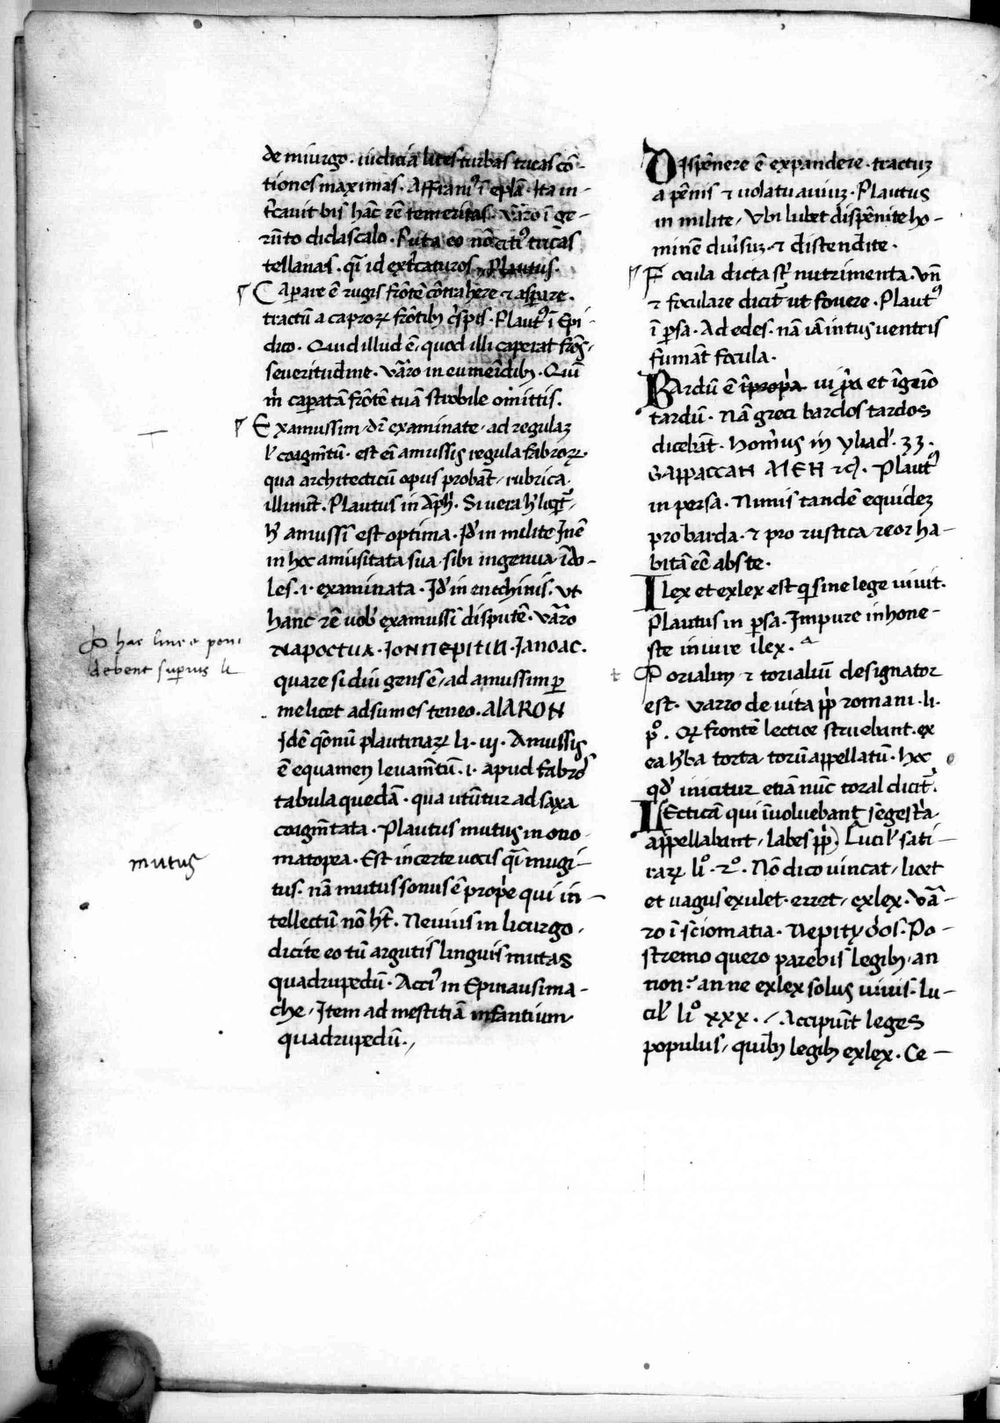 de miurgo · iudicia lites turbas tricas cō-
tiones maximas. Affraniꝰ ī eplā · Ita in-
t̄cauit bis hāc rē temeritas. Varo ī ge-
rūto didascalo. Puta eo nō citiꝰ tricas
tellanas. qī id ext̄caturos Plautus.
Caperare ē rugis frōtē cōtrahere ⁊ asperare.
tractū a caproꝝ frōtibꝫ c̄spis. Plautꝰ ī Epi-
dico. Quid illud ē, quod illi caperat frōs
seueritudine. Varo in eumeidibꝫ. Quī
m̄ caperatā frōtē tuā strobile omittis.
Examussim. dr̄ examinate. ad regulaꝫ
l' coagm̄tū. est eī amussis regula fabroꝝ
qua architecticū opus probāt, rubrica
illinūt. Plautus in Aph'.
h' amussī est optima. Jd' in milite
in hoc amusitata sua sibi ingenua īdo-
les. i. examinata. Jd' in enichinis. Vt
hanc rē uob' examussī disputē. Varo
NAPOCTUA · IONNEPITIN · IANOAC.
quare si diui gens ē, ad amussim ꝑ
me licet adsumes teneo. AIARON
Jdē q̄onū plautinaꝝ li. iij. Amussis
ē equamen leuam̄tū. i. apud fabros
tabula quedā. qua utūtur ad saxa
coagm̄tata. Plautus mutus in ono-
matopea. Est incerte uocis qī mugi-
tus. nā mutus sonus ē prop̄e qui in-
tellectū nō h̄t. Neuius in licurgo.
dicite eo tū argutis linguis mutas
quadrupedū. Acciꝰ in Epinausima-
che, Item ad mestitiā infantium
quadrupedū.,
hae linee poni
debent superius li
mutus
Dispēnere ē expandere. tractuꝫ
a pēnis ⁊ uolatu auiuꝫ. Plautus
in milite, Vbi lubet dispēnite ho-
minē diu'suꝫ ⁊ distendite.
Focula dicta sr̄ nutrimenta. Vn̄
⁊ foculare dicit̄ ut fouere. Plautꝰ
ī p̄sa. Ad edes. nā iā intus uentris
fumāt focula.
Bardū ē īprop̄a et īgeīo
tardū. Nā greci bardos tardos
dicebāt. Hom̄us in yliad'. 33.
GAPPACCAN AIEN ⁊c̄. Plautꝰ
in persa. Nimis tandē equidez
pro barda. ⁊ pro rustica reor ha-
bitā eē abs te.
Ilex et exlex est q̄ sine lege uiuit.
Plautus in p̄sa. Impure inhone-
ste iniure ilex.
Porialim ⁊ torialiū designator
est. Varro de uita pp̄ romani. li.
p̄o. Qꝝ frontē lectice struebant. ex
ea h'ba torta torū appellatū. hoc
qd' inicitur etiā nūc toral dicit̄.
LEcticā qui īuoluebant segest̄a
appellabant, labes pp̄) Lucil' sati-
raꝝ liᵒ. 2ᵒ. Nō dico uincat, licet
et uagus exulet. erret, exlex. Vā-
ro ī sciomatia. NEPITYdos. Po-
stremo quero parebis legibꝫ an
non: an ne exlex solus uiuis. Lu-
cil' liᵒ xxx., Accipiūt leges
populus, quibꝫ legibꝫ exlex. Ce-